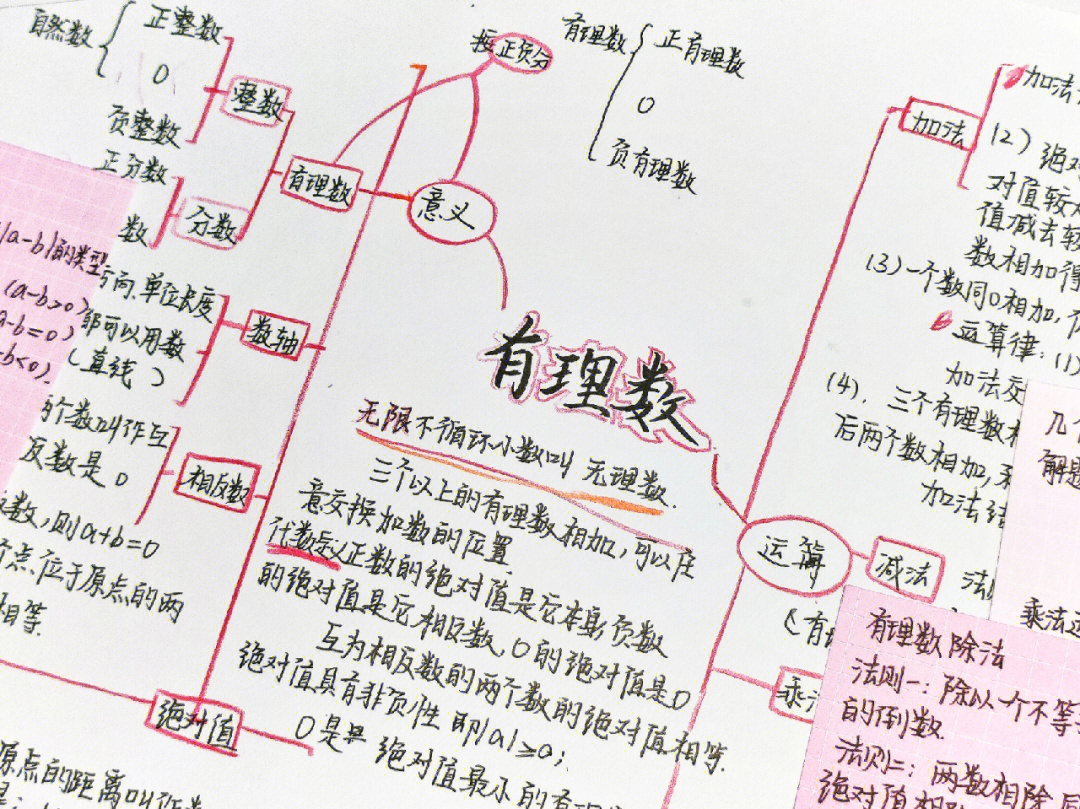 自然数
正整数
0
负整数
整数
正分数
数
分数
有理数
按正负分
意义
有理数
正有理数
0
负有理数
|a-b|的类型
(a-b>0)
a-b=0)
-b<0).
方向、单位长度
都可以用数
(直线)
数轴
两个数叫作互
反数是0
相反数
数,则a+b=0
个点位于原点的两
相等.
绝对值
原点的距离叫作
有理数
无限不循环小数叫 无理数.
三个以上的有理数相加,可以任
意交换加数的位置.
代数意义 正数的绝对值是它本身 负数
的绝对值是它相反数. 0的绝对值是0
互为相反数的两个数的绝对值相等.
绝对值具有非负性 即|a|≥a;
0是 绝对值最小的有理
加法
加法
(2) 绝对
对值较
值减去较
数相加得
(3)一个数同0相加,
运算律:(1)
加法交
(4). 三个有理数
后两个数相加,
加法结
几个
解题
运算
减法
法
(有
乘法
乘法运
有理数除法
法则一:除以一个不等
的倒数.
法则二:两数相除
绝对值相